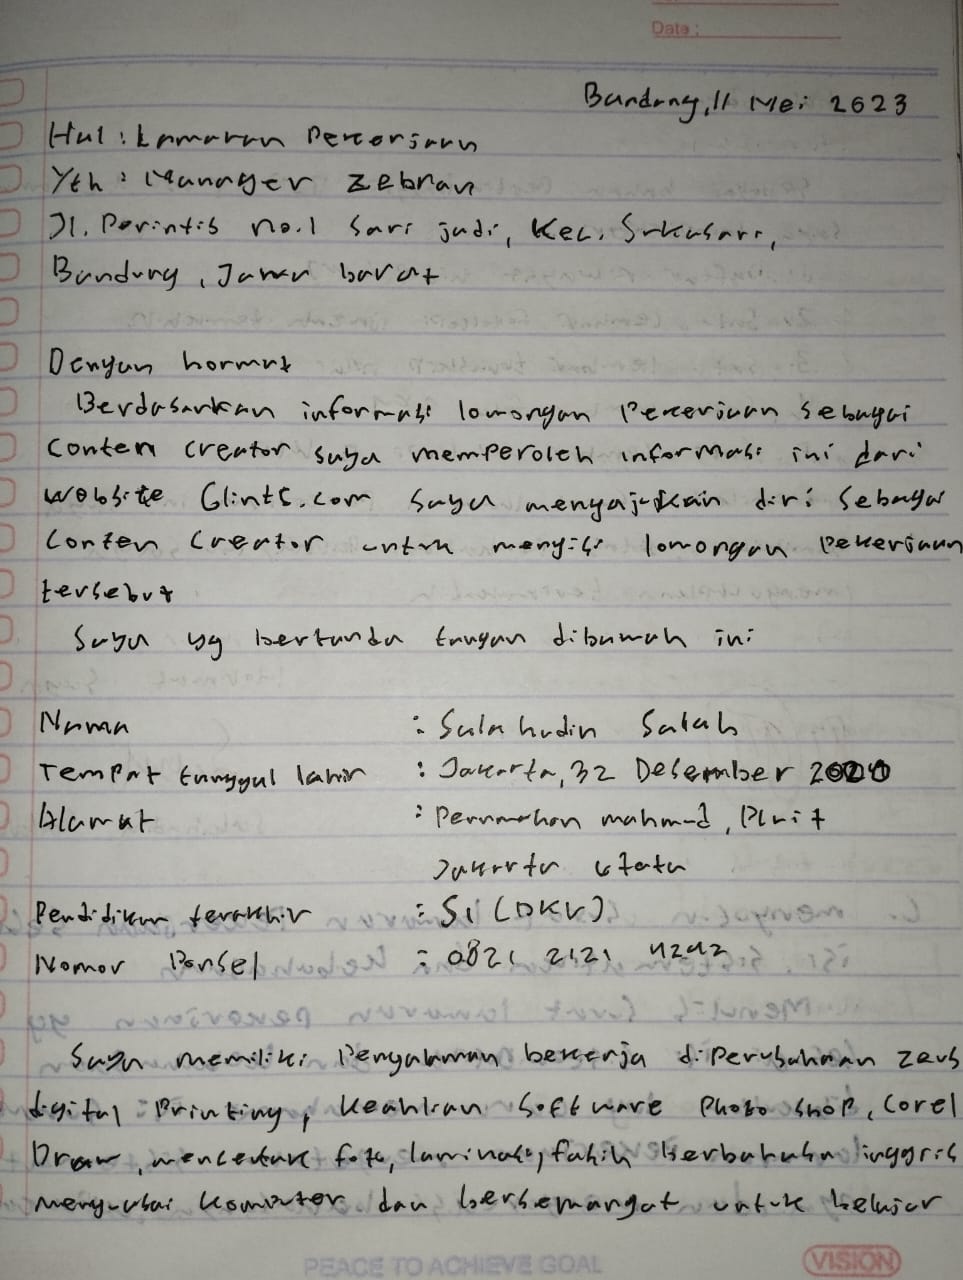 Date :
Bandung, 11 Mei 2023
Hal : Lamaran Pekerjaan
Yth : Manager Zebran
Jl. Perintis no.1 Sari jadi, Kec. Sukasari,
Bandung, Jawa barat
Dengan hormat
Berdasarkan informasi lowongan Pekerjaan sebagai
Conten Creator saya memperoleh informasi ini dari
website Glints.com saya mengajukan diri sebagai
Conten Creator untuk mengisi lowongan Pekerjaan
tersebut
Saya yg bertanda tangan dibawah ini
Nama : Salahudin Salah
Tempat tanggal lahir : Jakarta, 32 Desember 2000
Alamat : Perumahan mahmud, Pluit
Jakarta utara
Pendidikan terakhir : S1 (DKV)
Nomor Ponsel : 0821 2121 4242
Saya memiliki Pengalaman bekerja diperusahaan zeus
digital Printing, Keahlian Software Photo shop, Corel
Draw, mencetak foto, laminasi, fasih berbahasa inggris
menguasai Komputer dan bersemangat untuk belajar
PEACE TO ACHIEVE GOAL
VISION